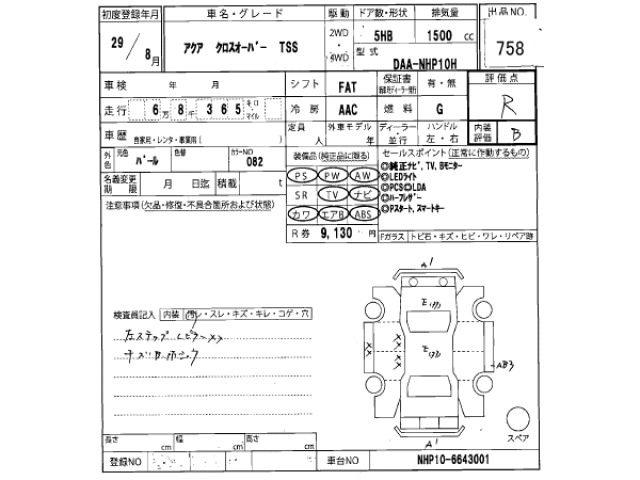 初度登録年月
車名・グレード
駆動
ドア数・形状
排気量
出品NO.
29/8月
アクア クロスオーバー TSS
2WD
・
4WD
5HB
1500 cc
758
型式
DAA-NHP10H
車検 年 月
シフト
FAT
保証書
有・無
評価点
走行 6万8千365
キロ
マイル
冷房
AAC
燃料
G
R
車歴 自家用・レンタ・事業用( )
定員
人
外車モデル
年
ディーラー・
並行
ハンドル
左・右
内装
評価
B
外色
元色
パール
色替
カラーNO
082
装備品(純正品に限る)
セールスポイント(正常に作動するもの)
PS PW AW
◎純正ナビ,TV,Bモニター
◎LEDライト
名義変更
期限
月 日迄
積載 t
SR TV ナビ
◎PCS◎LDA
◎ハーフレザー
注意事項(欠品・修復・不具合箇所および状態)
カワ エアB ABS
◎Pスタート,スマートキー
R券 9,130 円
Fガラス トビ石・キズ・ヒビ・ワレ・リペア跡
A1
検査員記入 内装 汚レ・スレ・キズ・キレ・コゲ・穴
左ステップ
XX
XX
AB3
A1
スペア
長さ cm
幅 cm
高さ cm
登録NO
車台NO
NHP10-6643001